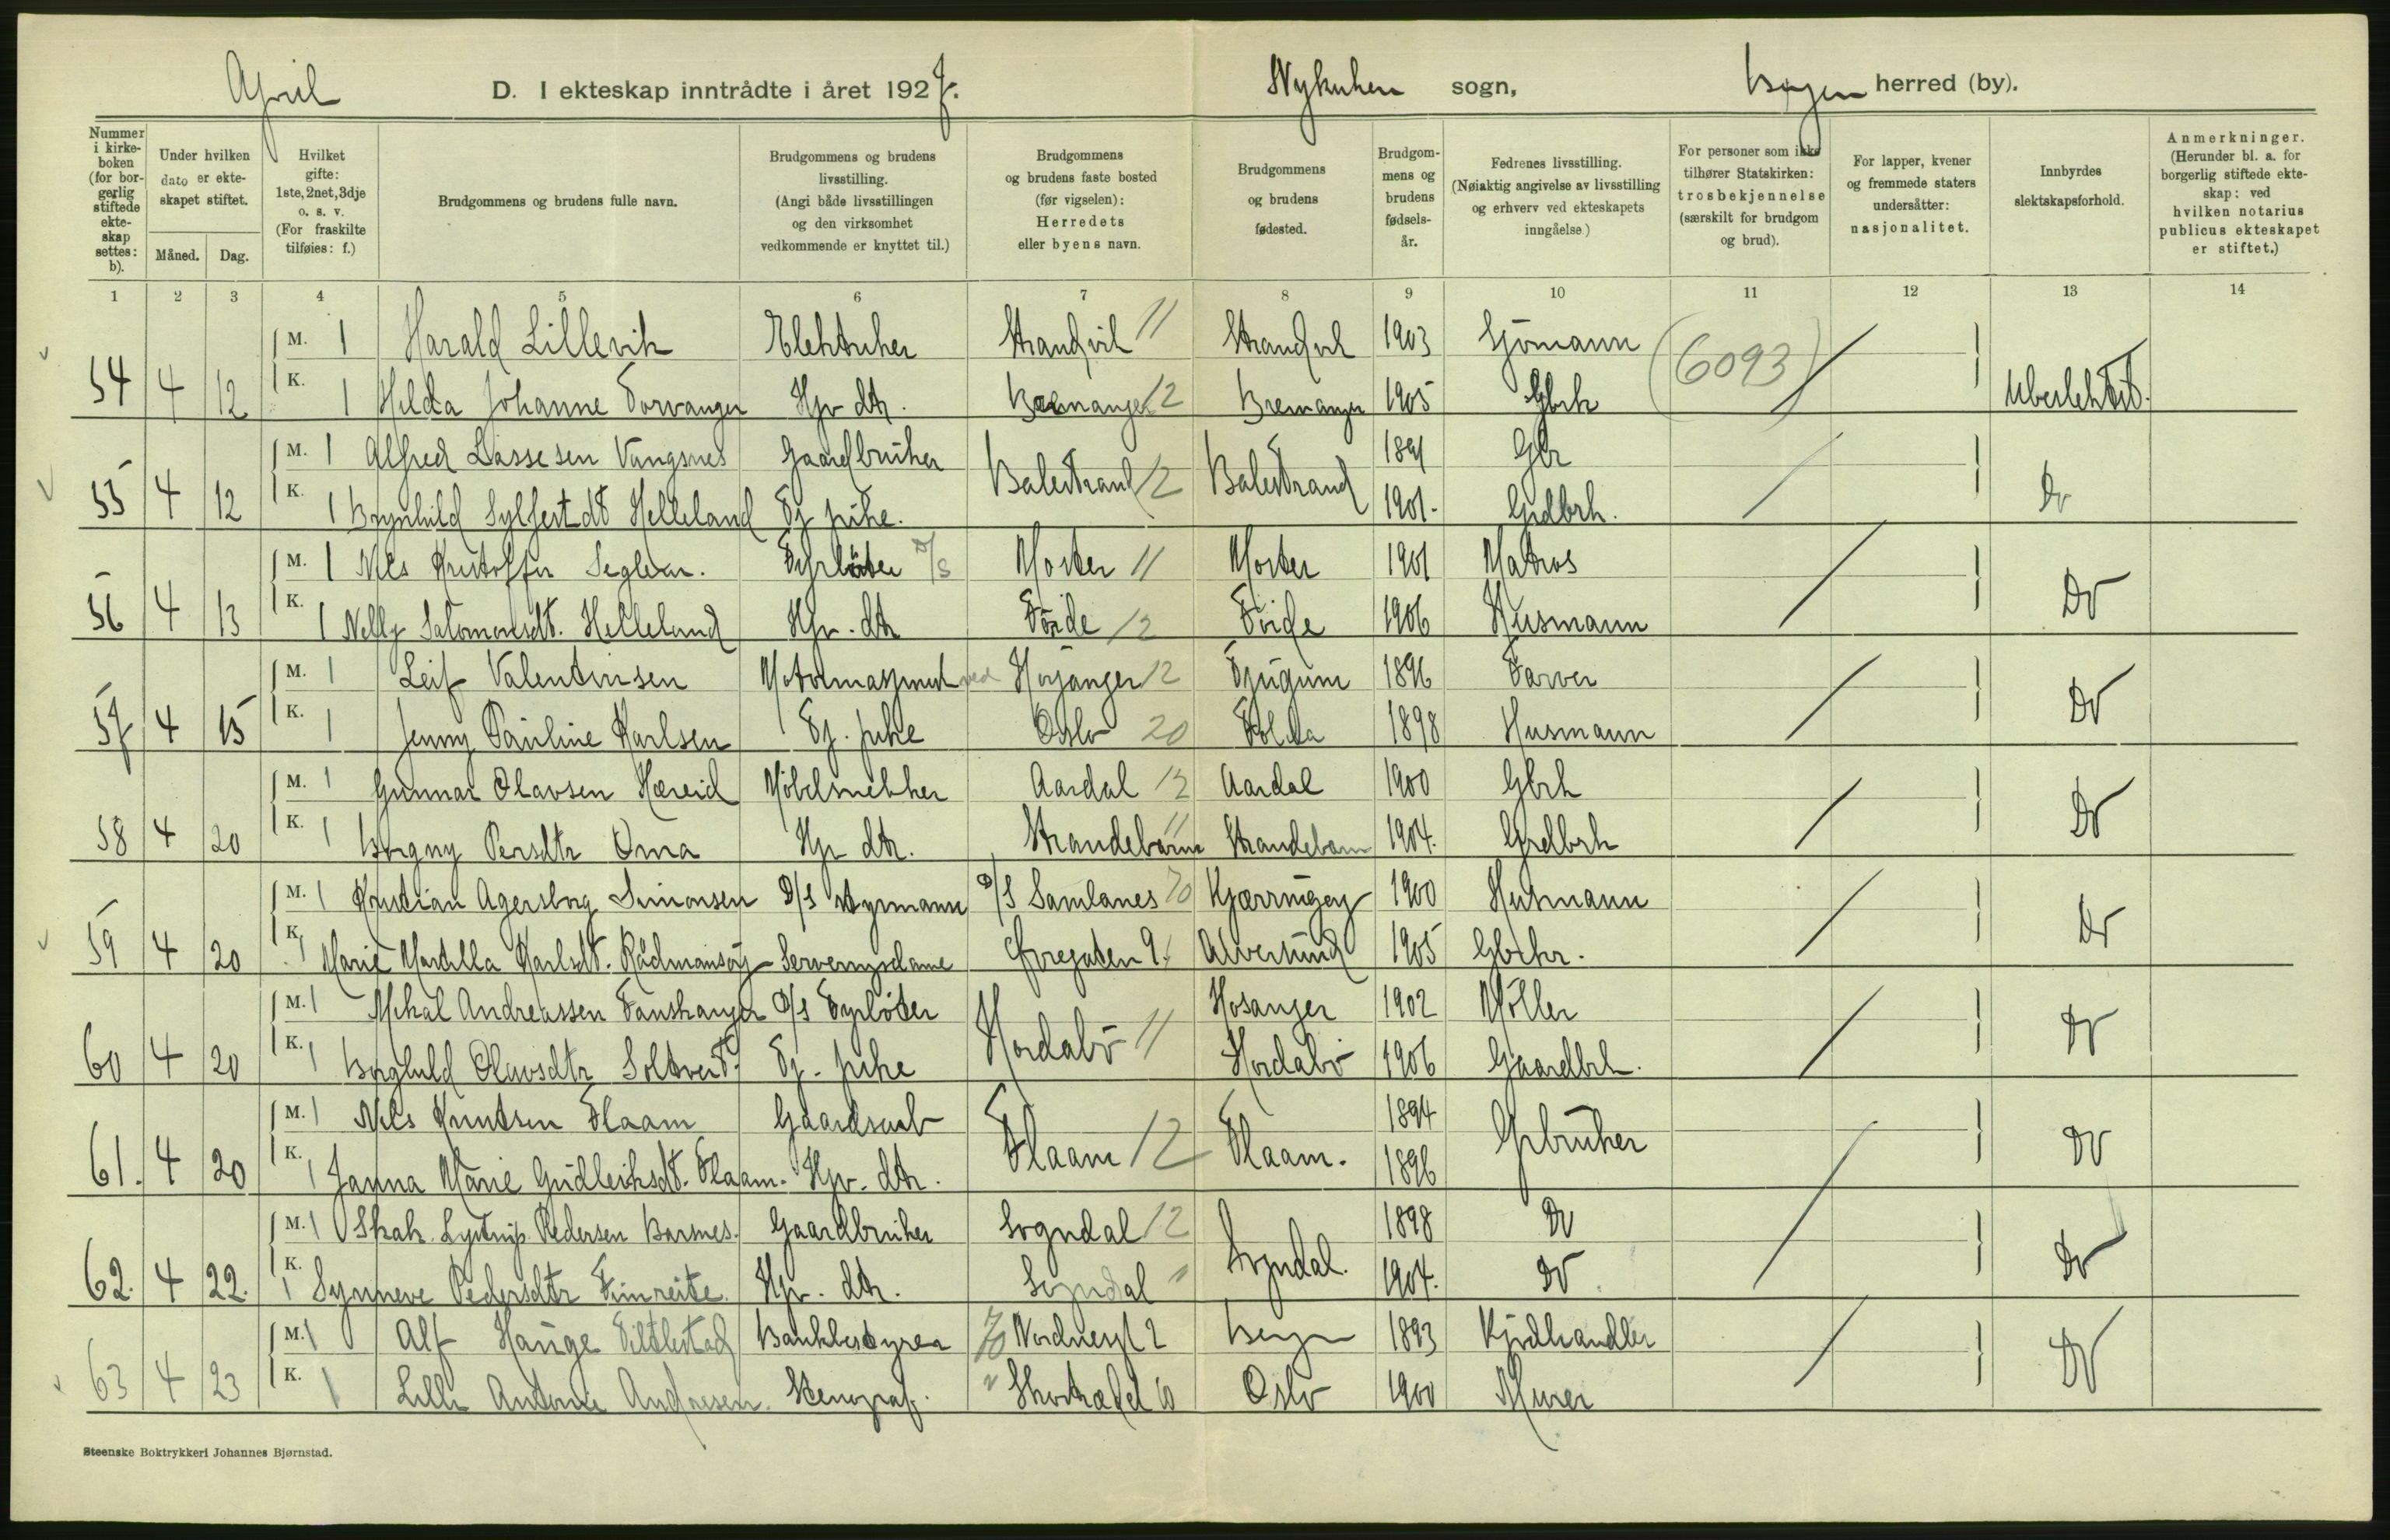 April D. I ekteskap inntrådte i året 1927. Nykirken sogn, Bergen herred (by).
Nummer i kirke-boken (for bor-gerlig stiftede ekte-skap settes: b).
Under hvilken dato er ekte-skapet stiftet.
Måned. Dag.
Hvilket gifte: 1ste, 2net, 3dje o. s. v. (For fraskilte tilføies: f.)
Brudgommens og brudens fulle navn.
Brudgommens og brudens livsstilling. (Angi både livsstillingen og den virksomhet vedkommende er knyttet til.)
Brudgommens og brudens faste bosted (før vigselen): Herredets eller byens navn.
Brudgommens og brudens fødested.
Brudgom-mens og brudens fødsels-år.
Fedrenes livsstilling. (Nøiaktig angivelse av livsstilling og erhverv ved ekteskapets inngåelse)
For personer som ikke tilhører Statskirken: trosbekjennelse (særskilt for brudgom og brud).
For lapper, kvener og fremmede staters undersåtter: nasjonalitet.
Innbyrdes slektskapsforhold.
Anmerkninger. (Herunder bl. a. for borgerlig stiftede ekte-skap: ved hvilken notarius publicus ekteskapet er stiftet.)
1 2 3 4 5 6 7 8 9 10 11 12 13 14
M. 1 Harald Lillevik Elektriker Strandvik 11 Strandvik 1903 Sjömann (6093)
54 4 12 K. 1 Hilda Johanne Torvanger Hjv dtr. Bremanger 12 Bremanger 1905 Gbrk Ubeslektet.
M. 1 Alfred Lassesen Vangsnes Gaardbruker Balestrand 12 Balestrand 1891 Gbr
55 4 12 K. 1 Brynhild Sylfestdt Helleland Tj pike. 1901. Grdbrk. Do
M. 1 Nils Kristoffer Seglem. Fyrböter D/S Moster 11 Moster 1901 Matros
56 4 13 K. 1 Nelly Salomonsdt. Helleland Hjv. dtr Förde 12 Förde 1906 Husmann Do
M. 1 Leif Valentinsen Motormaskinist Höyanger 12 Tjugum 1896 Farver
57 4 15 K. 1 Jenny Pauline Karlsen Tj. pike Oslo 20 Folda 1898 Husmann Do
M. 1 Gunnar Olavsen Hæreid Möbelsnekker Aardal 12 Aardal 1900 Gbrk
58 4 20 K. 1 Borgny Persdtr Oma Hjv dtr. Strandebarm 11 Strandebarm 1904. Grdbrk Do
M. 1 Kristian Agersborg Simonsen D/S styrmann D/S Samlanes 70 Kjærringøy 1900 Husmann
59 4 20 K. 1 Marie Martilla Karlsdt. Rådmansöy Serveringsdame Øvregaten 9. Alversund 1905 Gbrkr. Do
M. 1 Mikal Andreassen Fauskanger D/S Fyrböter Hordabö 11 Hosanger 1902 Möller
60 4 20 K. 1 Borghild Olavsdtr Soltveit. Tj. pike Hordabö 1906 Gaardbrk. Do
M. 1 Nils Knutsen Flaam Gaardsarb Flaam 12 Flaam. 1894 Gbruker
61. 4 20 K. 1 Janna Marie Gudleiksdt. Flaam. Hjv. dtr. 1896 Do
M. 1 Skak Lystrup Pedersen Barsnes. Gaardbruker Sogndal 12 Sogndal. 1898 Do
62. 4 22. K. 1 Synneve Pedersdtr Fimreite. Hjv. dtr. Sogndal " 1904. Do Do
M. 1 Alf Hauge Bankbestyrer 70 Nordnesgt 2 Bergen 1893 Kjödhandler
63 4 23 K. 1 Lilly Antonie Andresen. Stenograf. " 10 Oslo 1900 Murer Do
Steenske Boktrykkeri Johannes Bjørnstad.